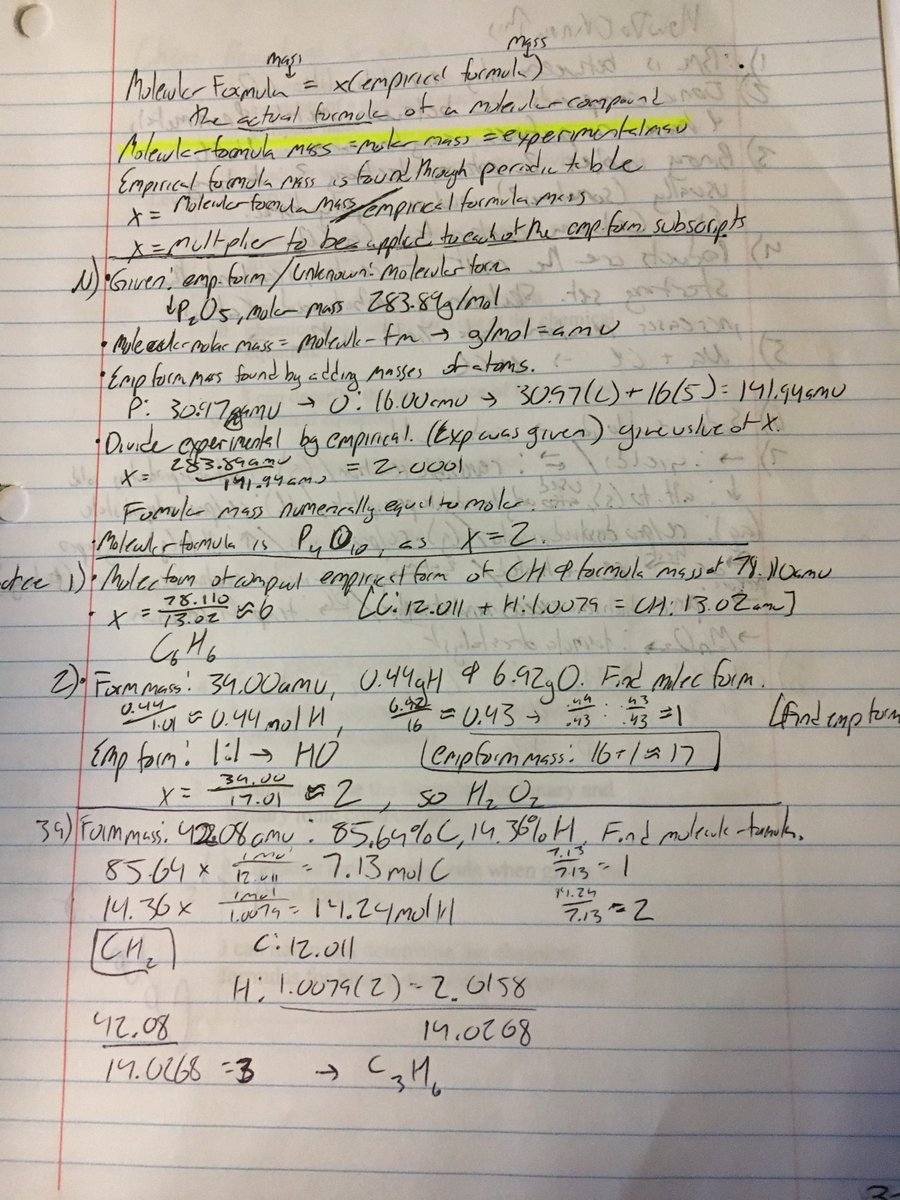 mass mass
Molecular Formula = x(empirical formula)
the actual formula of a molecular compound
Molecular formula mass = molar mass = experimental mass
Empirical formula mass is found through periodic table
x = Molecular formula mass / empirical formula mass
x = multiplier to be applied to each of the emp. form. subscripts
N) • Given: emp. form / Unknown: molecular form
↓ P2O5, molar mass 283.89g/mol
• Molecular molar mass = molecular fm → g/mol = amu
• Emp form mass found by adding masses of atoms.
P: 30.97 amu → O: 16.00 amu → 30.97(2) + 16(5) = 141.94 amu
• Divide experimental by empirical. (Exp was given) give value of X.
x = 283.89 amu / 141.94 amu = 2.0001
Formula mass numerically equal to molar.
• Molecular formula is P4O10, as x = 2.
1) • Molec form of compound empirical form of CH & formula mass of 78.110amu
• x = 78.110 / 13.02 ≈ 6 [C: 12.011 + H: 1.0079 = CH: 13.02 amu]
C6H6
2) • Form mass: 34.00amu, 0.44gH & 6.92gO. Find molec form.
0.44 / 1.01 ≈ 0.44 mol H, 6.92 / 16 = 0.43 → .44 / .43 : .43 / .43 = 1 [find emp form
Emp form: 1:1 → HO [emp form mass: 16+1 ≈ 17]
x = 34.00 / 17.01 ≈ 2, so H2O2
3a) Form mass: 42.08 amu: 85.64% C, 14.36% H. Find molecular formula.
85.64 × 1 mol / 12.011 = 7.13 mol C 7.13 / 7.13 = 1
14.36 × 1 mol / 1.0079 = 14.24 mol H 14.24 / 7.13 = 2
CH2 C: 12.011
H: 1.0079(2) = 2.0158
42.08 14.0268
14.0268 = 3 → C3H6